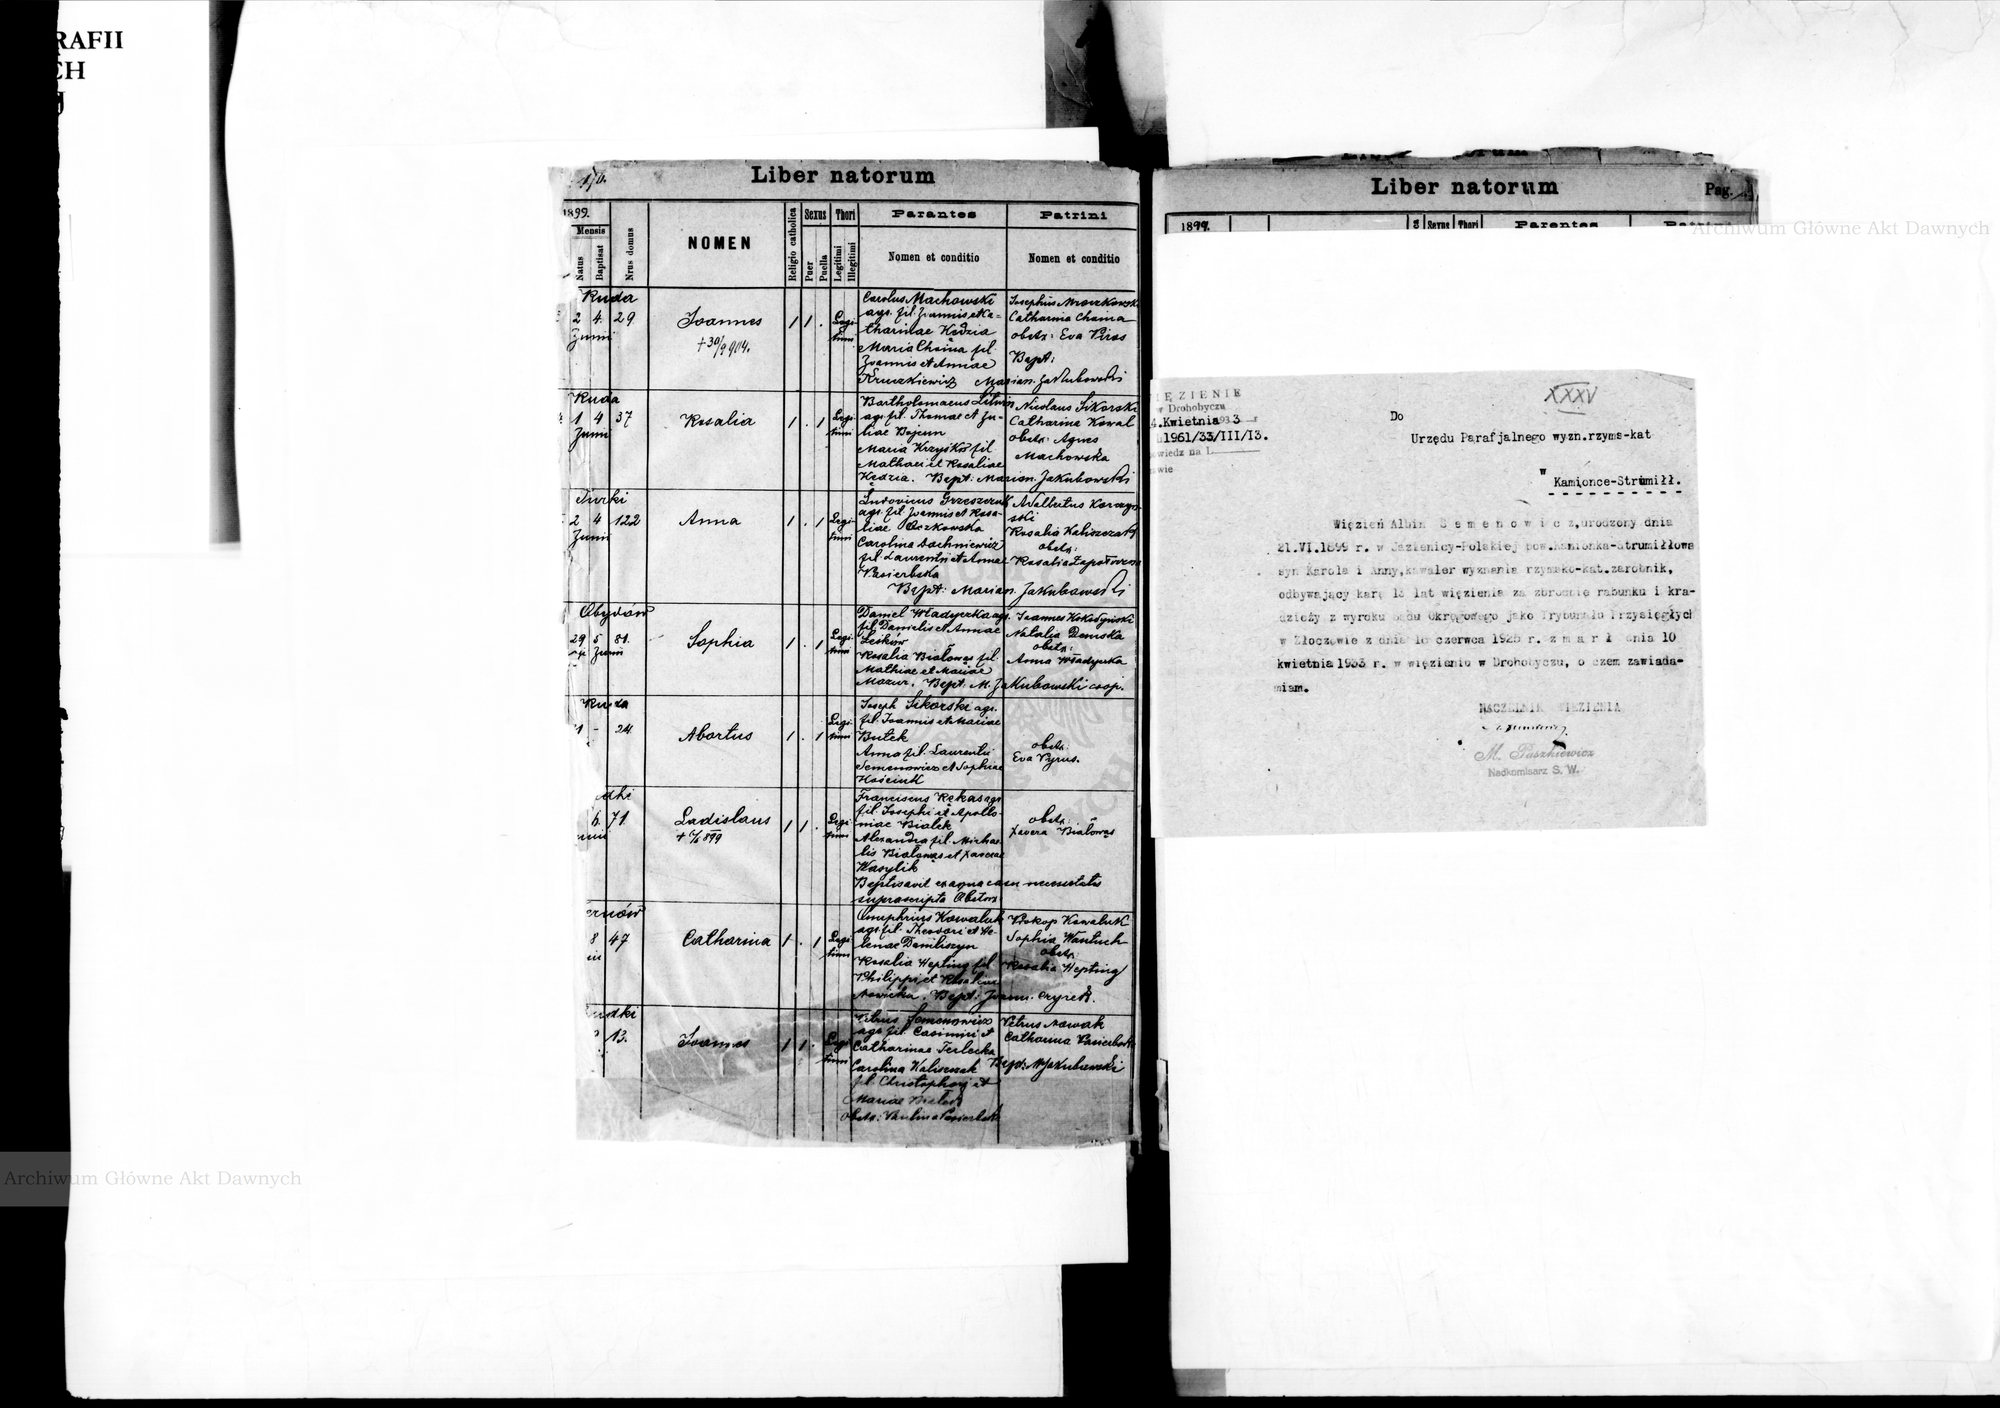 RAFII
CH
J
Liber natorum
1899.
Mensis
Natus
Baptisat
Nrus domus
NOMEN
Religio catholica
Sexus
Puer
Puella
Thori
Legitimi
Illegitimi
Parentes
Nomen et conditio
Patrini
Nomen et conditio
Ruda
2 4. 29
Junii
Joannes
+ 30/9 904.
1 1 .
Legi-
timi
Carolus Machowski
agr. fil. Joannis et Ca-
tharinae Kędzia
Maria Choina fil.
Joannis et Annae
Kruczkiewicz
Josephus Mroczkowski
Catharina Choina
obstx: Eva Piros
Bapt:
Marian. Jakubowski
Ruda
1 4 37
Junii
Rosalia
1 . 1
Legi-
timi
Bartholomaeus Litwin
agr. fil. Thomae et Ju-
liae Bojcun
Maria Krzyśków fil
Mathaei et Rosaliae
Kędzia. Bapt: Marian. Jakubowski
Nicolaus Sikorski
Catharina Kowal
obstx: Agnes
Machowska
2 4 122
Junii
Anna
1 . 1
Legi-
timi
Ludovicus Grzeszczuk
agr. fil. Joannis et Rosa-
liae
Carolina
fil. Laurentii et Annae
Pasierbska
Bapt: Marian. Jakubowski
Adalbertus Korczyń-
ski
Rosalia Kaliszczak
obstx:
Rosalia
Obydów
29 5 81.
Junii
Sophia
1 . 1
Legi-
timi
Daniel Władyczka agr.
fil. Danielis et Annae
Leśków
Rosalia Białowąs fil.
Mathiae et Mariae
Mazur. Bapt: M. Jakubowski coop.
Joannes
Natalia Demska
obstx:
Anna Władyczka
Ruda
1 - 24
Abortus
1 . 1
Legi-
timi
Joseph Sikorski agr.
fil. Joannis et Mariae
Butek
Anna fil. Laurentii
Semenowicz et Sophiae
Kościuk
obstx:
Eva Pyrus.
6. 71
Ladislaus
1 1 .
Legi-
timi
Franciscus Rękas agr
fil. Josephi et Apollo-
niae Białek
Alexandra fil. Micha-
lis Białowąs et Xaverae
Wasylik
Baptisavit ex aqua casu necessitatis
suprascripta Obstetrix
obstx:
Xavera Białowąs
8 47
Catharina
1 . 1
Legi-
timi
Onuphrius Kowaluk
agr. fil. Theodori et He-
lenae Daniliszyn
Rosalia Hepting fil.
Philippi et Rosaliae
Nowicka. Bapt: Joann.
Prokop Kowaluk
Sophia Wantuch
obstx:
Rosalia Hepting
13.
Joannes
1 1 .
Legi-
timi
Petrus Semenowicz
agr. fil. Casimiri et
Catharinae Terlecka
Carolina Kaliszczak
fil. Christophori et
Mariae
obstx: Paulina Pasierbska
Petrus Nowak
Catharina Pasierbska
Bapt: M Jakubowski
Liber natorum
Pag.
1899.
Sexus Thori Parentes
Archiwum Główne Akt Dawnych
IĘZIENIE
w Drohobyczu
4.Kwietnia 1933 r
1961/33/III/I3.
owiedz na L.
wie
XXXV
Do
Urzędu Parafjalnego wyzn.rzyms-kat
w
Kamionce-Strumiłł.
Więzień Albin Semenowicz, urodzony dnia
21.VI.1899 r. w Jazienicy-Polskiej pow.Kamionka-Strumiłłowa
syn Karola i Anny, kawaler wyznania rzymsko-kat.zarobnik,
odbywający karę 13 lat więzienia za zbrodnię rabunku i kra-
dzieży z wyroku Sądu Okręgowego jako Trybunału Przysięgłych
w Złoczowie z dnia 16 czerwca 1925 r. zmarł dnia 10
kwietnia 1933 r. w więzieniu w Drohobyczu, o czem zawiada-
miam.
NACZELNIK WIĘZIENIA
M. Paszkiewicz
Nadkomisarz S. W.
Archiwum Główne Akt Dawnych